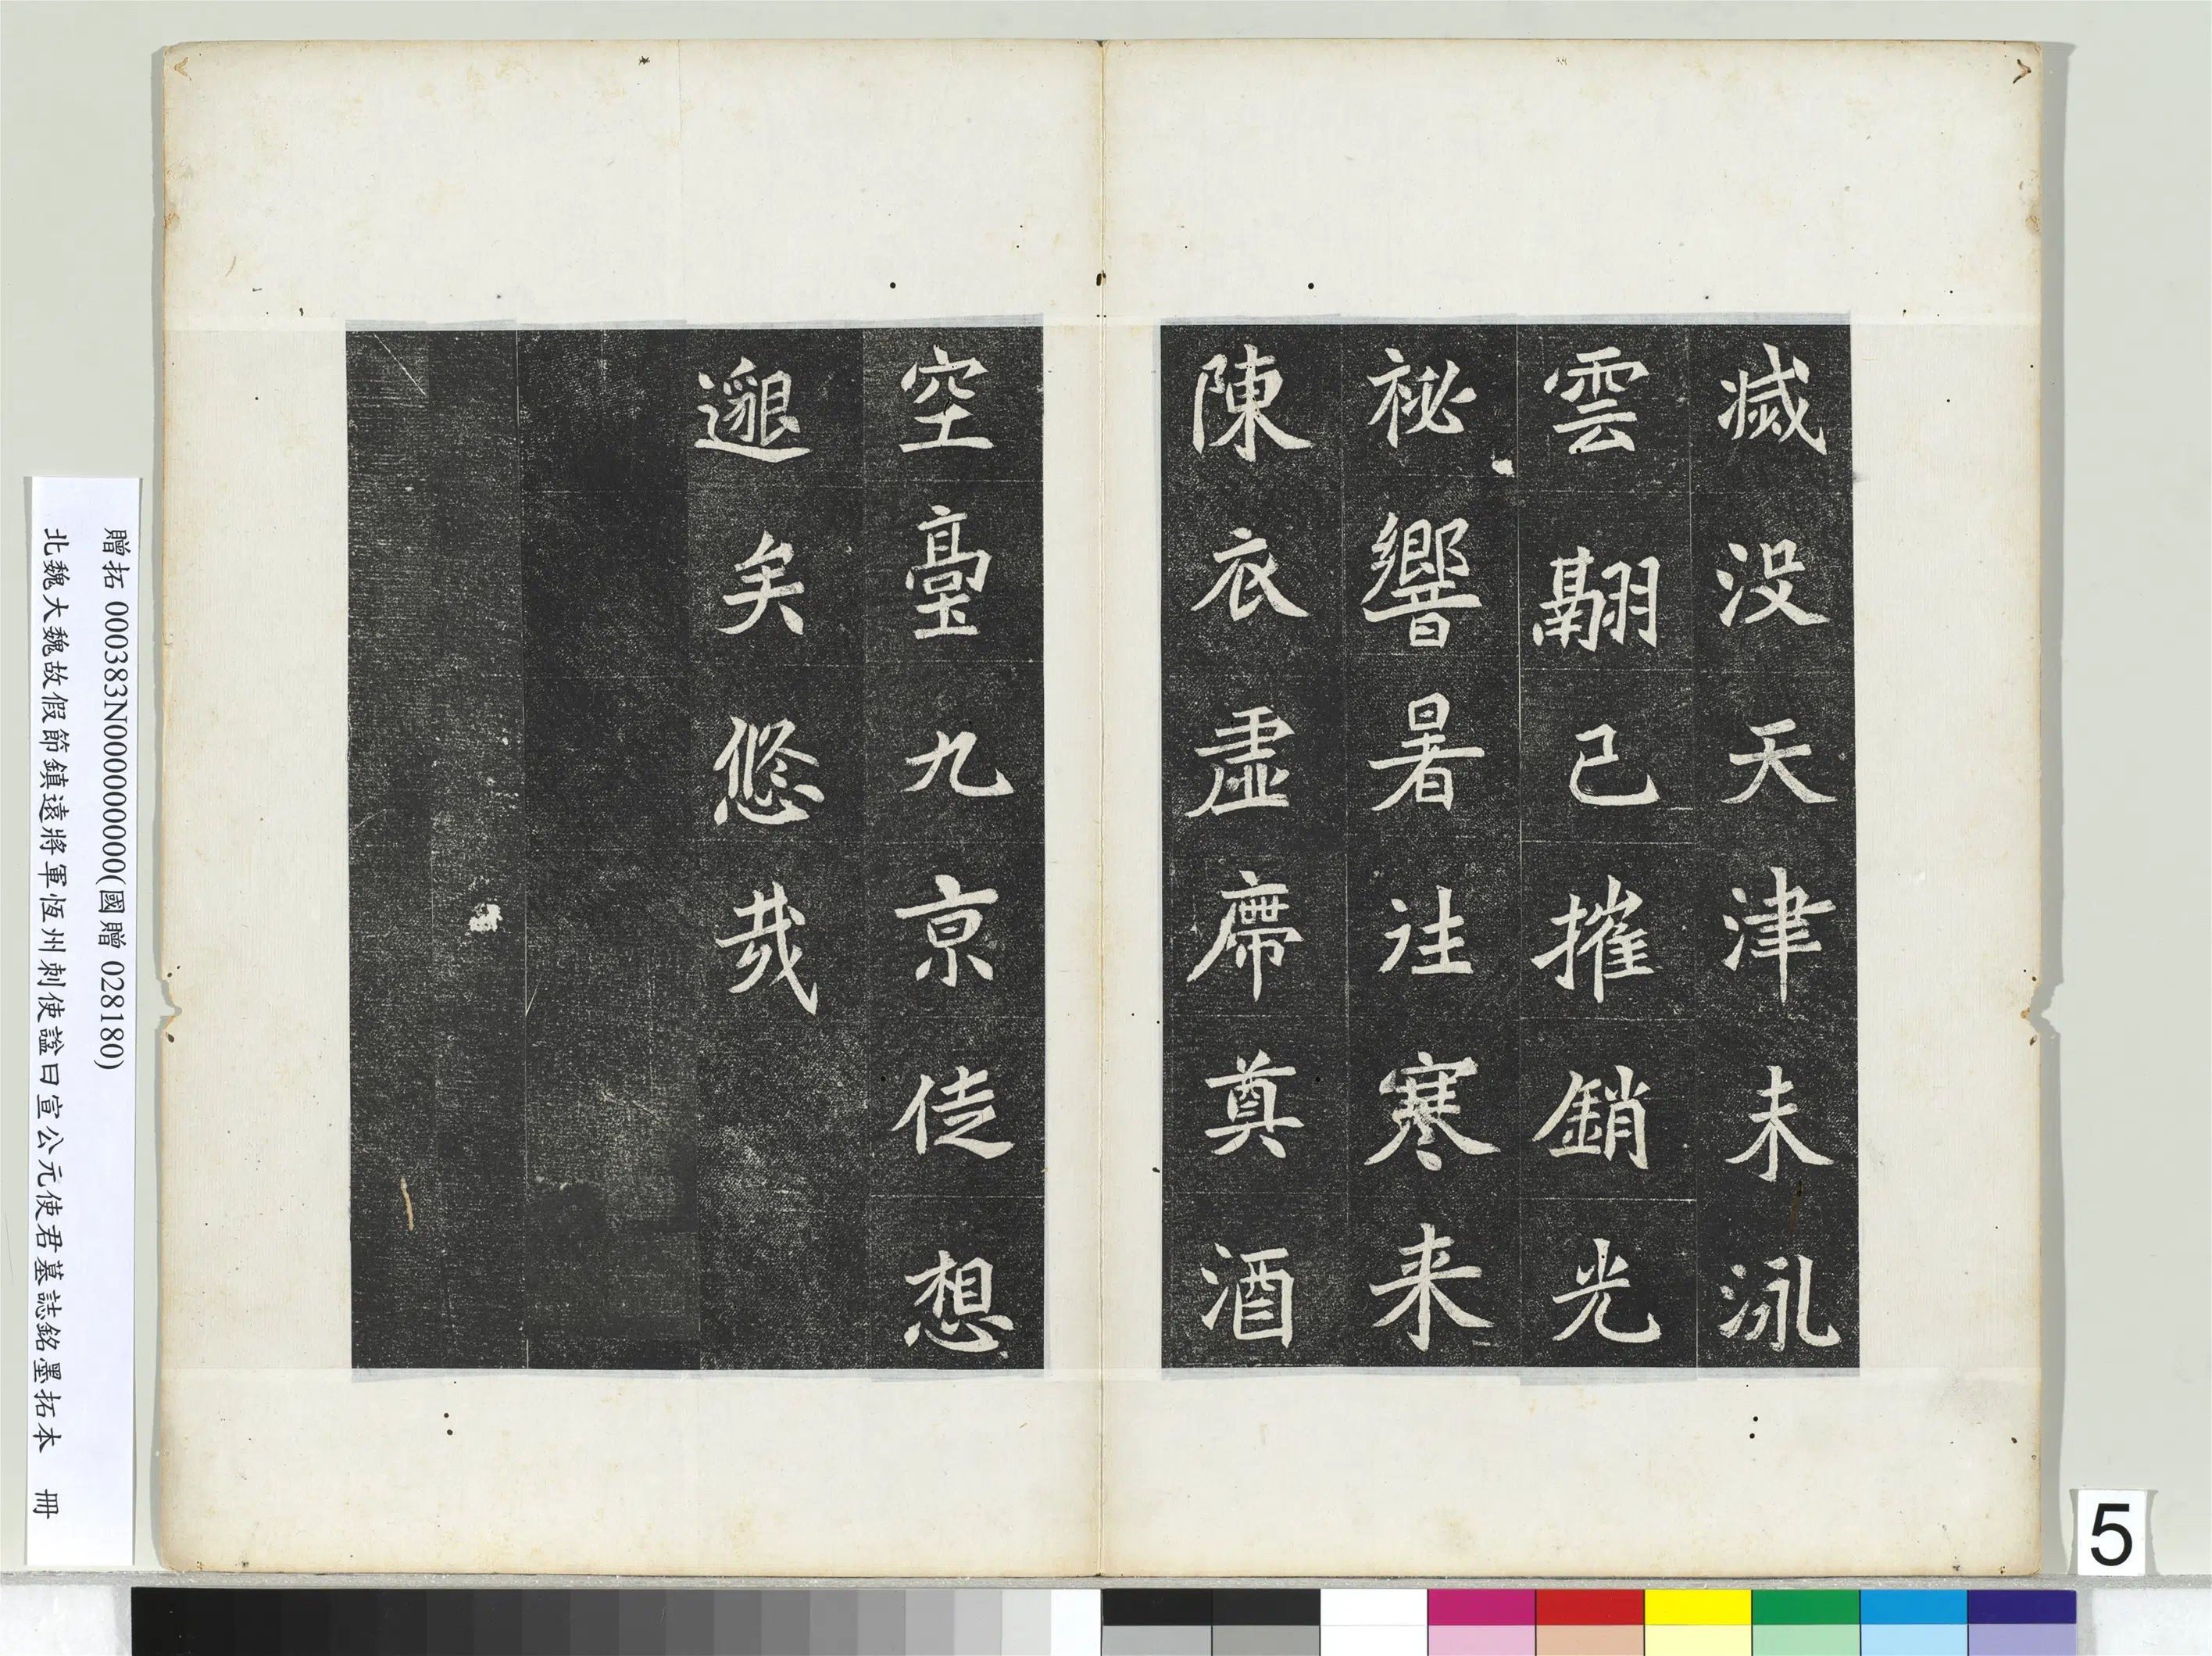 滅没天津未泳
雲翮已摧銷光
祕響暑往寒来
陳衣虛席奠酒
空臺九京徒想
邈矣悠哉
贈拓 000383N000000000(國贈 028180)
北魏大魏故假節鎮遠將軍恆州刺使諡曰宣公元使君墓誌銘墨拓本 冊
5